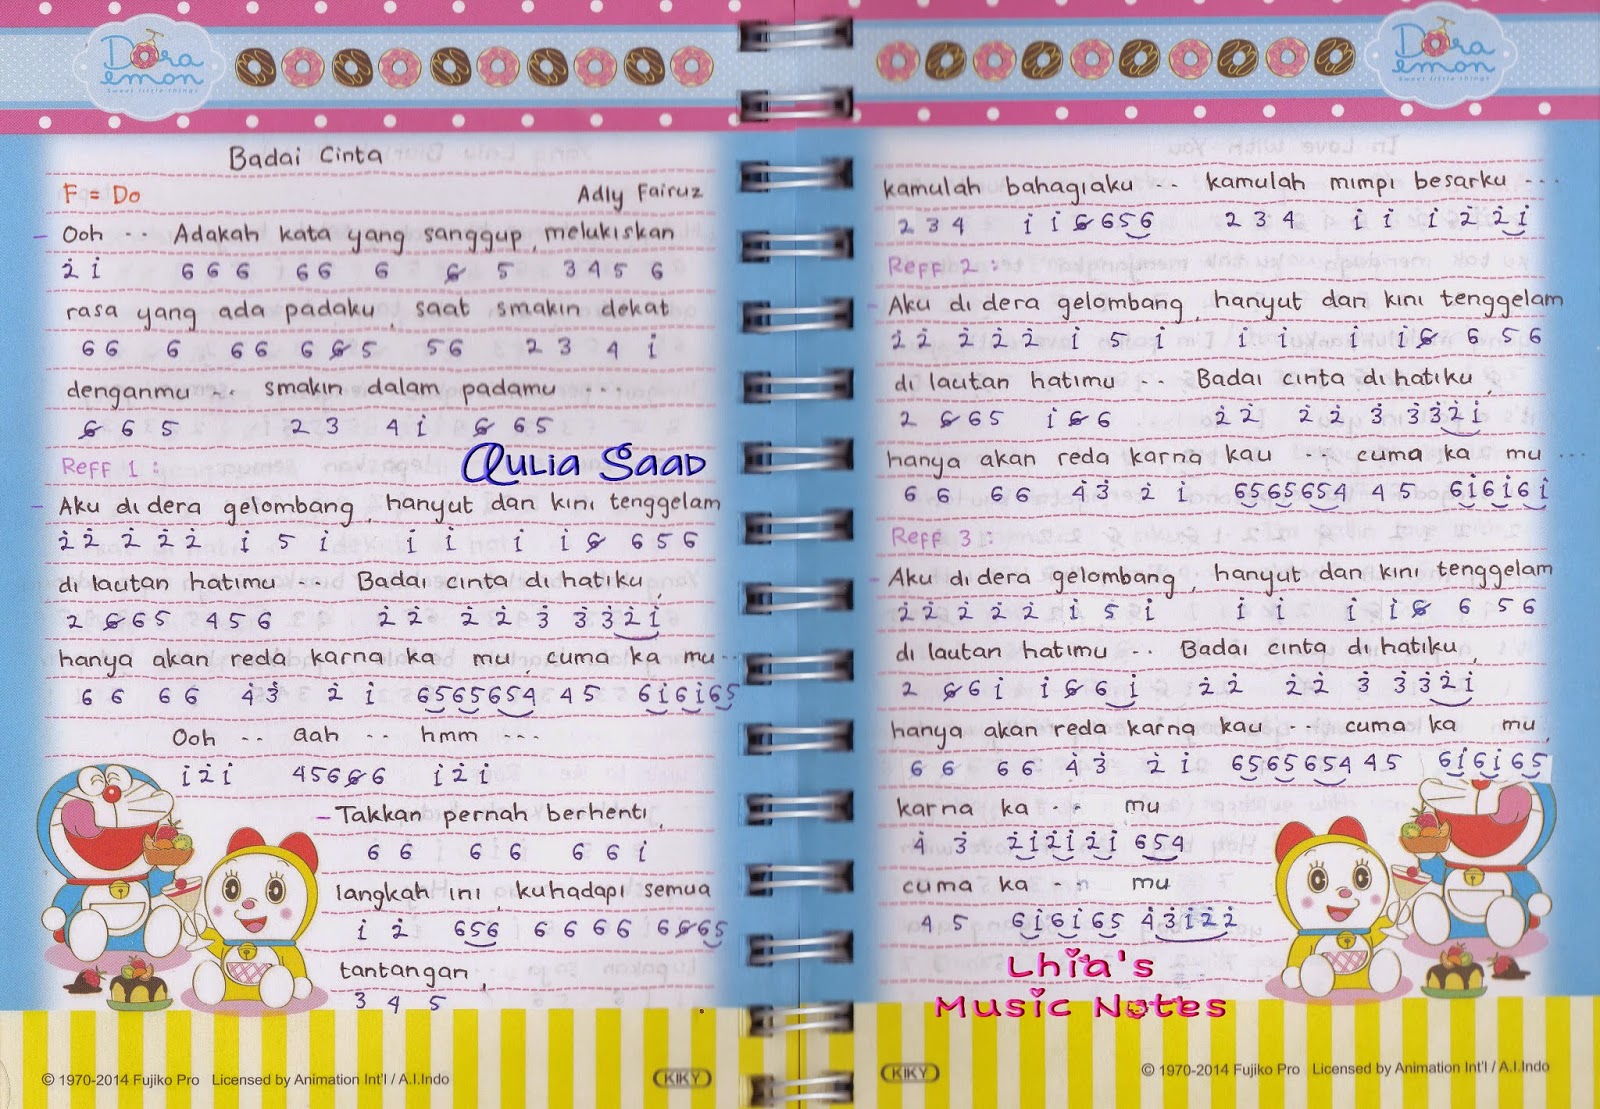 Dora
emon
Sweet little things
Badai Cinta
F = Do Adly Fairuz
- Ooh -- Adakah kata yang sanggup, melukiskan
2̇ 1̇ 6 6 6 6 6 6 6̸ 5 3 4 5 6
rasa yang ada padaku, saat smakin dekat
6 6 6 6 6 6 6̸ 5 5 6 2 3 4 1̇
denganmu -- smakin dalam padamu ---
6̸ 6 5 2 3 4 1̇ 6̸ 6 5
Aulia Saad
Reff 1 :
- Aku di dera gelombang, hanyut dan kini tenggelam
2̇ 2̇ 2̇ 2̇ 2̇ 1̇ 5 1̇ 1̇ 1̇ 1̇ 1̇ 6̸ 6 5 6
di lautan hatimu -- Badai cinta di hatiku,
2 6̸ 6 5 4 5 6 2̇ 2̇ 2̇ 2̇ 3̇ 3̇ 3̇ 2̇ 1̇
hanya akan reda karna ka mu, cuma ka mu --
6 6 6 6 4̇ 3̇ 2̇ 1̇ 6 5 6 5 6 5 4 4 5 6 1̇ 6 1̇ 6 5
Ooh -- aah -- hmm ---
1̇ 2̇ 1̇ 4 5 6 6̸ 6 1̇ 2̇ 1̇
- Takkan pernah berhenti,
6 6 6 6 6 6 1̇
langkah ini, kuhadapi semua
1̇ 2̇ 6 5 6 6 6 6 6 6 6̸ 6 5
tantangan,
3 4 5
© 1970-2014 Fujiko Pro Licensed by Animation Int'l / A.I.Indo
KIKY
Dora
emon
Sweet little things
kamulah bahagiaku -- kamulah mimpi besarku ---
2 3 4 1̇ 1̇ 6̸ 6 5 6 2 3 4 1̇ 1̇ 1̇ 2̇ 2̇ 1̇
Reff 2 :
- Aku di dera gelombang, hanyut dan kini tenggelam
2̇ 2̇ 2̇ 2̇ 2̇ 1̇ 5 1̇ 1̇ 1̇ 1̇ 1̇ 6̸ 6 5 6
di lautan hatimu -- Badai cinta di hatiku,
2 6̸ 6 5 1̇ 6̸ 6 2̇ 2̇ 2̇ 2̇ 3̇ 3̇ 3̇ 2̇ 1̇
hanya akan reda karna kau --- cuma ka mu ---
6 6 6 6 4̇ 3̇ 2̇ 1̇ 6 5 6 5 6 5 4 4 5 6 1̇ 6 1̇ 6 1̇
Reff 3 :
- Aku di dera gelombang, hanyut dan kini tenggelam
2̇ 2̇ 2̇ 2̇ 2̇ 1̇ 5 1̇ 1̇ 1̇ 1̇ 1̇ 6̸ 6 5 6
di lautan hatimu -- Badai cinta di hatiku,
2 6̸ 6 1̇ 1̇ 6̸ 6 1̇ 2̇ 2̇ 2̇ 2̇ 3̇ 3̇ 3̇ 2̇ 1̇
hanya akan reda karna kau -- cuma ka mu,
6 6 6 6 4̇ 3̇ 2̇ 1̇ 6 5 6 5 6 5 4 4 5 6 1̇ 6 1̇ 6 5
karna ka -- mu
4̇ 3̇ 2̇ 1̇ 2̇ 1̇ 2̇ 1̇ 6 5 4
cuma ka -- mu
4 5 6 1̇ 6 1̇ 6 5 4̇ 3̇ 1̇ 2̇ 2̇
Lhia's
Music Notes
KIKY
© 1970-2014 Fujiko Pro Licensed by Animation Int'l / A.I.Indo